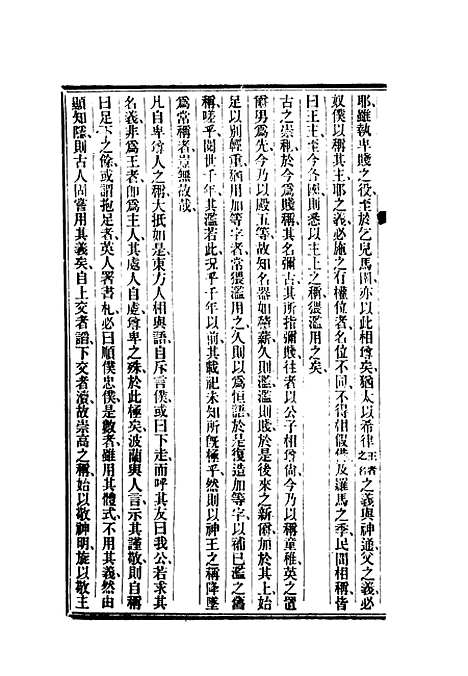 耶、雖執卑賤之役、至於乞兒馬圉、亦以此相尊矣、猶太以希律王者之名之義與神通、父之義必
奴僕以稱其主、耶之義必施之有權位者、名位不同、不得相假借、及羅馬之季、民間相稱、皆
曰王、主至今各國、則悉以主上之稱猥濫用之矣、
古之崇稱、於今爲賤稱、其名彌古、其所指彌賤、往者以公子相尊尙、今乃以稱童稚、英之置
爵、男爲先、今乃以殿五等、故知名器如積薪、久則濫、濫則賤、於是後來之新爵、加於其上、始
足以別輕重、猶用加等字者、常猥濫用之、久則以爲恒語、於是復造加等字、以補已濫之舊
稱、嗟乎、閱世千年、其濫若此、況乎千年以前、其載祀未知所旣極乎、然則以神王之稱、降墜
爲常稱者、豈無故哉、
凡自卑尊人之稱、大抵如是、東方人相與語、自斥言僕、或曰下走、而呼其友曰我公、若求其
名義、非爲王者、卽爲主人、其處人自處、尊卑之殊、於此極矣、波蘭與人言、示其謹敬、則自稱
曰足下之𠊓、或謂抱足者、英人署書札、必曰順僕忠僕、是數者、雖用其體式、不用其義、然由
顯知隱、則古人固嘗用其義矣、自上交者諂、下交者瀆、故崇高之稱、始以敬神明、旋以敬主